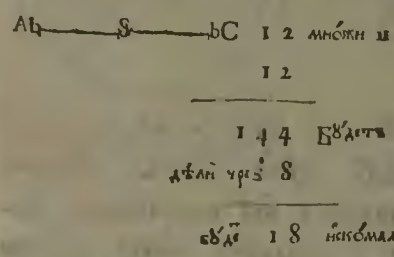 Ab 8 bC 1 2 мно́жи и
1 2
1 4 4 Бꙋ́детъ
дѣлѝ чрез̾ 8
бꙋ́де 1 8 и҆ско́маѧ